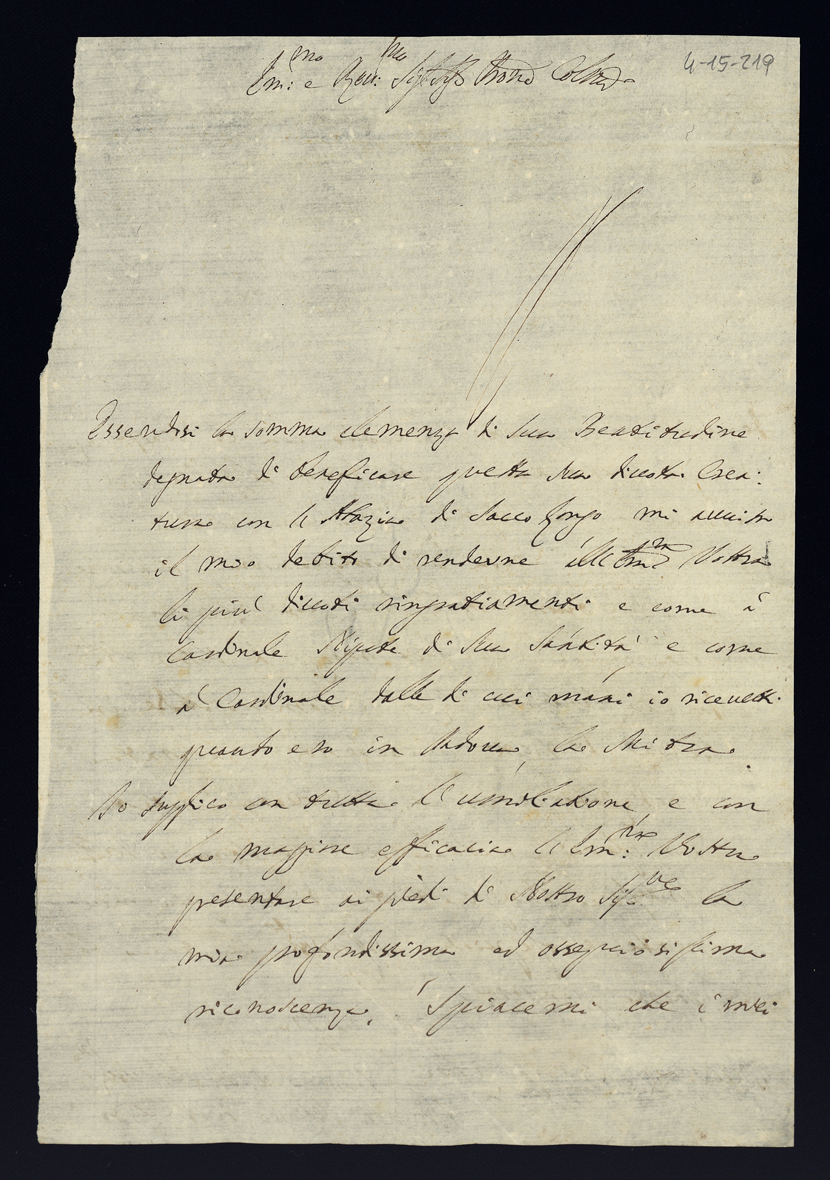 4-15-219
Em:mo e Rev:mo Sig Sig Prone Colmo
Essendosi la somma clemenza di Sua Beatitudine
degnata di beneficare questa sua divota Crea:
tura con la Abazia di Sacco longo mi avviso
il mio debito di renderne all'Emza Vostra
li più divoti ringratiamenti e come à
Cardinale Nipote di Sua Santità e come
à Cardinale dalle di cui mani io ricevetti
quanto ero in Padova la Mitra.
Io supplico con tutta l'umiliazione, e con
la maggiore efficacia l'Em:za Vostra
presentare ai piedi di Nostro Sigre la
mia profondissima ed ossequiosissima
riconoscenza. Spiacemi che i miei